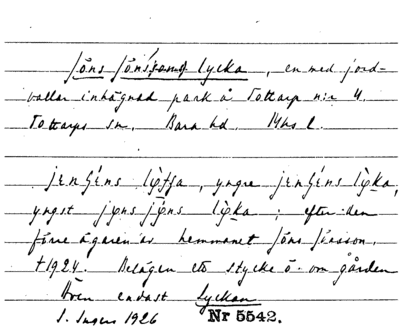 Jöns Jöns lycka, en med jord-
vallar inhägnad park å Tottarp n:r 4.
Tottarps sn. Bara hd. Mhs l.
yngre
yngst ; efter den
förre ägaren av hemmanet Jöns Jönsson,
†1924. Belägen ett stycke ö. om gården
Även endast Lyckan
S. Ingers 1926 Nr 5542.